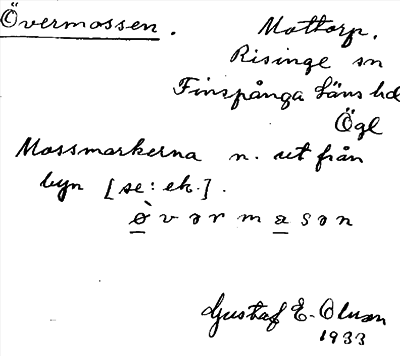 Övermossen.
Mottorp.
Risinge sn
Finspånga läns hd
Ögl
Mossmarkerna n. ut från
byn [se: ek.].
ø̀vərmasən
Gustaf E. Olsson
1933